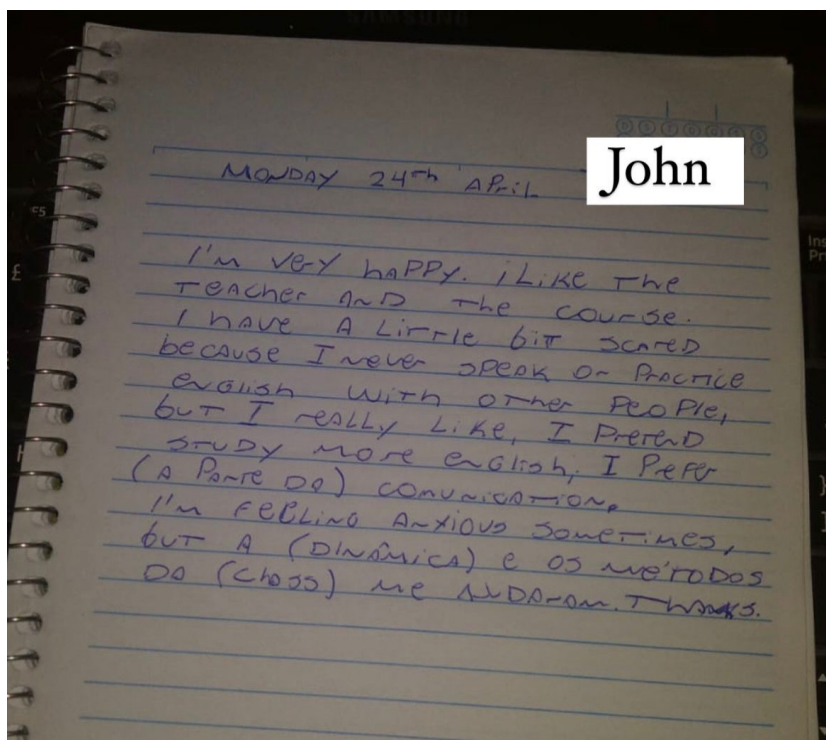 SAMSUNG
D S T Q Q S S
John
MONDAY 24th APril
I'm very hAPPY. i Like The
TEAcher AND The course.
I hAve A LiTTle biT scared
because I never speak or PrAcTice
english wiTh oTher PeoPle,
buT I reALLy Like, I PreTenD
sTuDy more english, I Prefer
(A PArTe DA) comunicATion,
I'm FEELinG Anxious someTimes,
buT A (DINÂMICA) e os méToDos
DA (ClAss) me AjuDArAm. ThAnks.